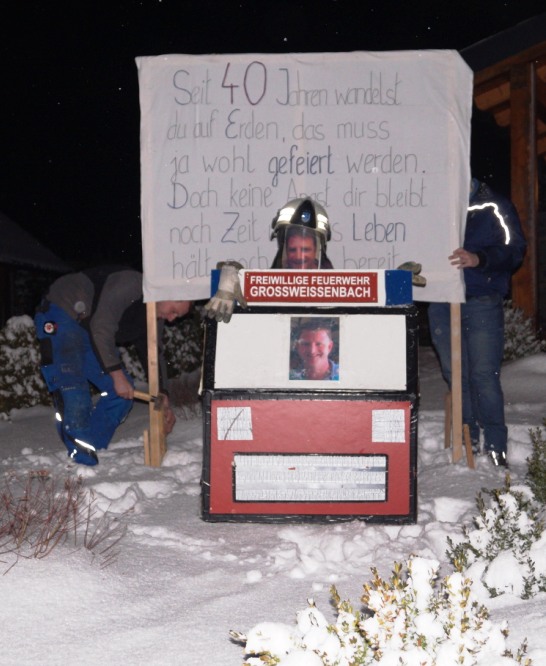 Seit 40 Jahren wandelst
du auf Erden, das muss
ja wohl gefeiert werden.
Doch keine Angst dir bleibt
noch Zeit s Leben
hält noch bereit
FREIWILLIGE FEUERWEHR
GROSSWEISSENBACH